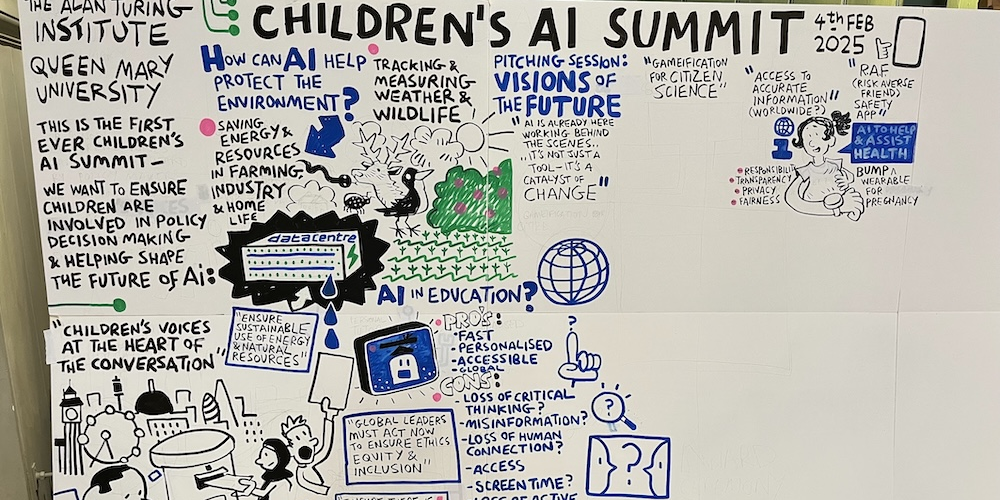 THE ALAN TURING
INSTITUTE
QUEEN MARY
UNIVERSITY
THIS IS THE FIRST
EVER CHILDREN'S
AI SUMMIT –
WE WANT TO ENSURE
CHILDREN ARE
INVOLVED IN POLICY
DECISION MAKING
& HELPING SHAPE
THE FUTURE OF Ai:
"CHILDREN'S VOICES
AT THE HEART OF
THE CONVERSATION"
CHILDREN'S AI SUMMIT
4th FEB
2025
HOW CAN AI HELP
PROTECT THE
ENVIRONMENT?
SAVING
ENERGY &
RESOURCES
IN FARMING,
INDUSTRY
& HOME
LIFE
TRACKING &
MEASURING
WEATHER &
WILDLIFE
datacentre
"ENSURE
SUSTAINABLE
USE OF ENERGY
& NATURAL
RESOURCES"
PITCHING SESSION:
VISIONS OF
THE FUTURE
"AI IS ALREADY HERE
WORKING BEHIND
THE SCENES..
..IT'S NOT JUST A
TOOL – IT'S A
CATALYST OF
CHANGE"
"GAMEIFICATION
FOR CITIZEN
SCIENCE"
"ACCESS TO
ACCURATE
INFORMATION"
(WORLDWIDE?)
i
• RESPONSIBILITY
• TRANSPARENCY
• PRIVACY
• FAIRNESS
"RAF
(RISK AVERSE
FRIEND)
SAFETY
APP"
AI TO HELP
& ASSIST
HEALTH
BUMP
WEARABLE
FOR
PREGNANCY
AI IN EDUCATION?
PRO'S:
- FAST
- PERSONALISED
- ACCESSIBLE
GLOBAL
CONS:
- LOSS OF CRITICAL
THINKING?
- MISINFORMATION?
- LOSS OF HUMAN
CONNECTION?
- ACCESS
- SCREEN TIME?
LOSS OF ACTIVE
?
?
?
"GLOBAL LEADERS
MUST ACT NOW
TO ENSURE ETHICS
EQUITY &
INCLUSION"